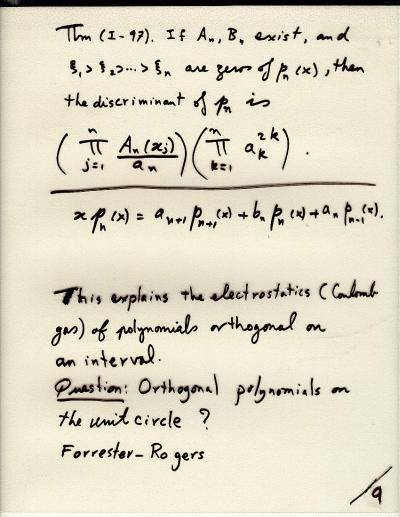 Thm (I-97). If Aₙ, Bₙ exist, and
ξ₁ > ξ₂ > ... > ξₙ are zeros of pₙ(x), then
the discriminant of pₙ is
( ∏_{j=1}^{n} Aₙ(xⱼ)/aₙ ) ( ∏_{k=1}^{n} aₖ^{2k} ) .
x pₙ(x) = aₙ₊₁ pₙ₊₁(x) + bₙ pₙ(x) + aₙ pₙ₋₁(x).
This explains the electrostatics (Coulomb
gas) of polynomials orthogonal on
an interval.
Question: Orthogonal polynomials on
the unit circle ?
Forrester-Rogers
9